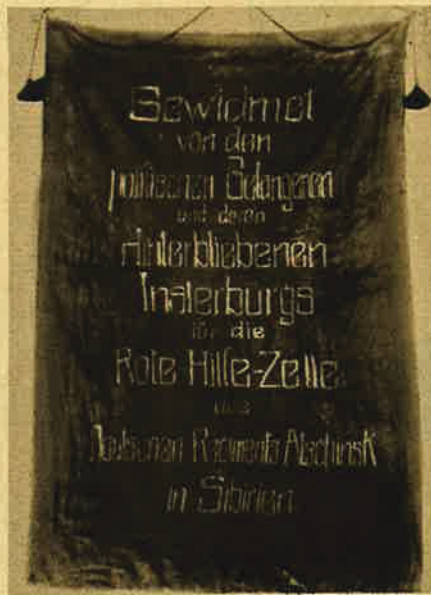 Gewidmet
von den
politischen Gefangenen
und deren
Hinterbliebenen
Insterburgs
für die
Rote Hilfe-Zelle
Atschinsk
in Sibirien